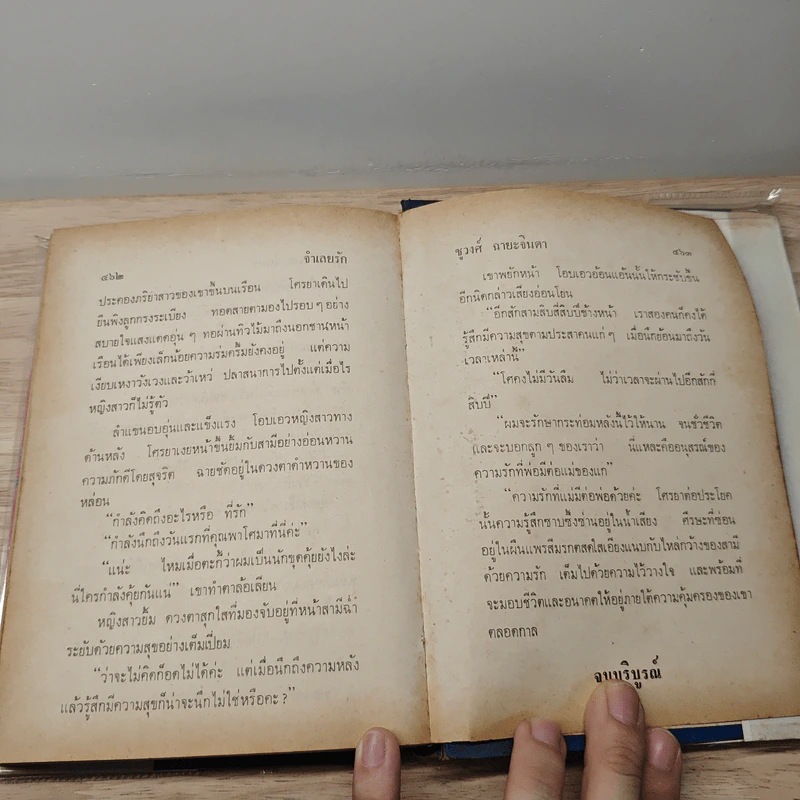 ๔๖๒
จำเลยรัก
ประคองภริยาสาวของเขาขึ้นบนเรือน โศรยาเดินไป
ยืนพิงลูกกรงระเบียง ทอดสายตามองไปรอบๆ อย่าง
สบายใจแสงแดดอุ่นๆ ทอผ่านทิวไม้มาถึงนอกชานหน้า
เรือนได้เพียงเล็กน้อยความร่มครึ้มยังคงอยู่ แต่ความ
เงียบเหงาวังเวงและว้าเหว่ ปลาสนาการไปตั้งแต่เมื่อไร
หญิงสาวก็ไม่รู้ตัว
ลำแขนอบอุ่นและแข็งแรง โอบเอวหญิงสาวทาง
ด้านหลัง โศรยาเงยหน้าขึ้นยิ้มกับสามีอย่างอ่อนหวาน
ความภักดีโดยสุจริต ฉายชัดอยู่ในดวงตาคำหวานของ
หล่อน
“กำลังคิดถึงอะไรหรือ ที่รัก”
“กำลังนึกถึงวันแรกที่คุณพาโศมาที่นี่ค่ะ”
“แน่ะ ไหมเมื่อตะกี้ว่าผมเป็นนักขุดคุ้ยยังไงล่ะ
นี่ใครกำลังคุ้ยกันแน่” เขาทำตาล้อเลียน
หญิงสาวยิ้ม ดวงตาสุกใสที่มองจับอยู่ที่หน้าสามีฉ่ำ
ระยับด้วยความสุขอย่างเต็มเปี่ยม
“ว่าจะไม่คิดก็อดไม่ได้ค่ะ แต่เมื่อนึกถึงความหลัง
แล้วรู้สึกมีความสุขก็น่าจะนึกไม่ใช่หรือคะ?”
ชูวงศ์ ฉายะจินดา
๔๖๓
เขาพยักหน้า โอบเอวอ้อนแอ้นนั้นให้กระชับขึ้น
อีกนิดกล่าวเสียงอ่อนโยน
“อีกสักสามสิบสี่สิบปีข้างหน้า เราสองคนก็คงได้
รู้สึกมีความสุขตามประสาคนแก่ๆ เมื่อนึกย้อนมาถึงวัน
เวลาเหล่านี้”
“โศคงไม่มีวันลืม ไม่ว่าเวลาจะผ่านไปอีกสักกี่
สิบปี”
“ผมจะรักษากระท่อมหลังนี้ไว้ให้นาน จนชั่วชีวิต
และจะบอกลูกๆ ของเราว่า นี่แหละคืออนุสรณ์ของ
ความรักที่พ่อมีต่อแม่ของแก”
“ความรักที่แม่มีต่อพ่อด้วยค่ะ โศรยาต่อประโยค
นั้นความรู้สึกซาบซึ้งซ่านอยู่ในน้ำเสียง ศีรษะที่ซ่อน
อยู่ในผืนแพรสีมรกตสดใสเอียงแนบกับไหล่กว้างของสามี
ด้วยความรัก เต็มไปด้วยความไว้วางใจ และพร้อมที่
จะมอบชีวิตและอนาคตให้อยู่ภายใต้ความคุ้มครองของเขา
ตลอดกาล
จบบริบูรณ์